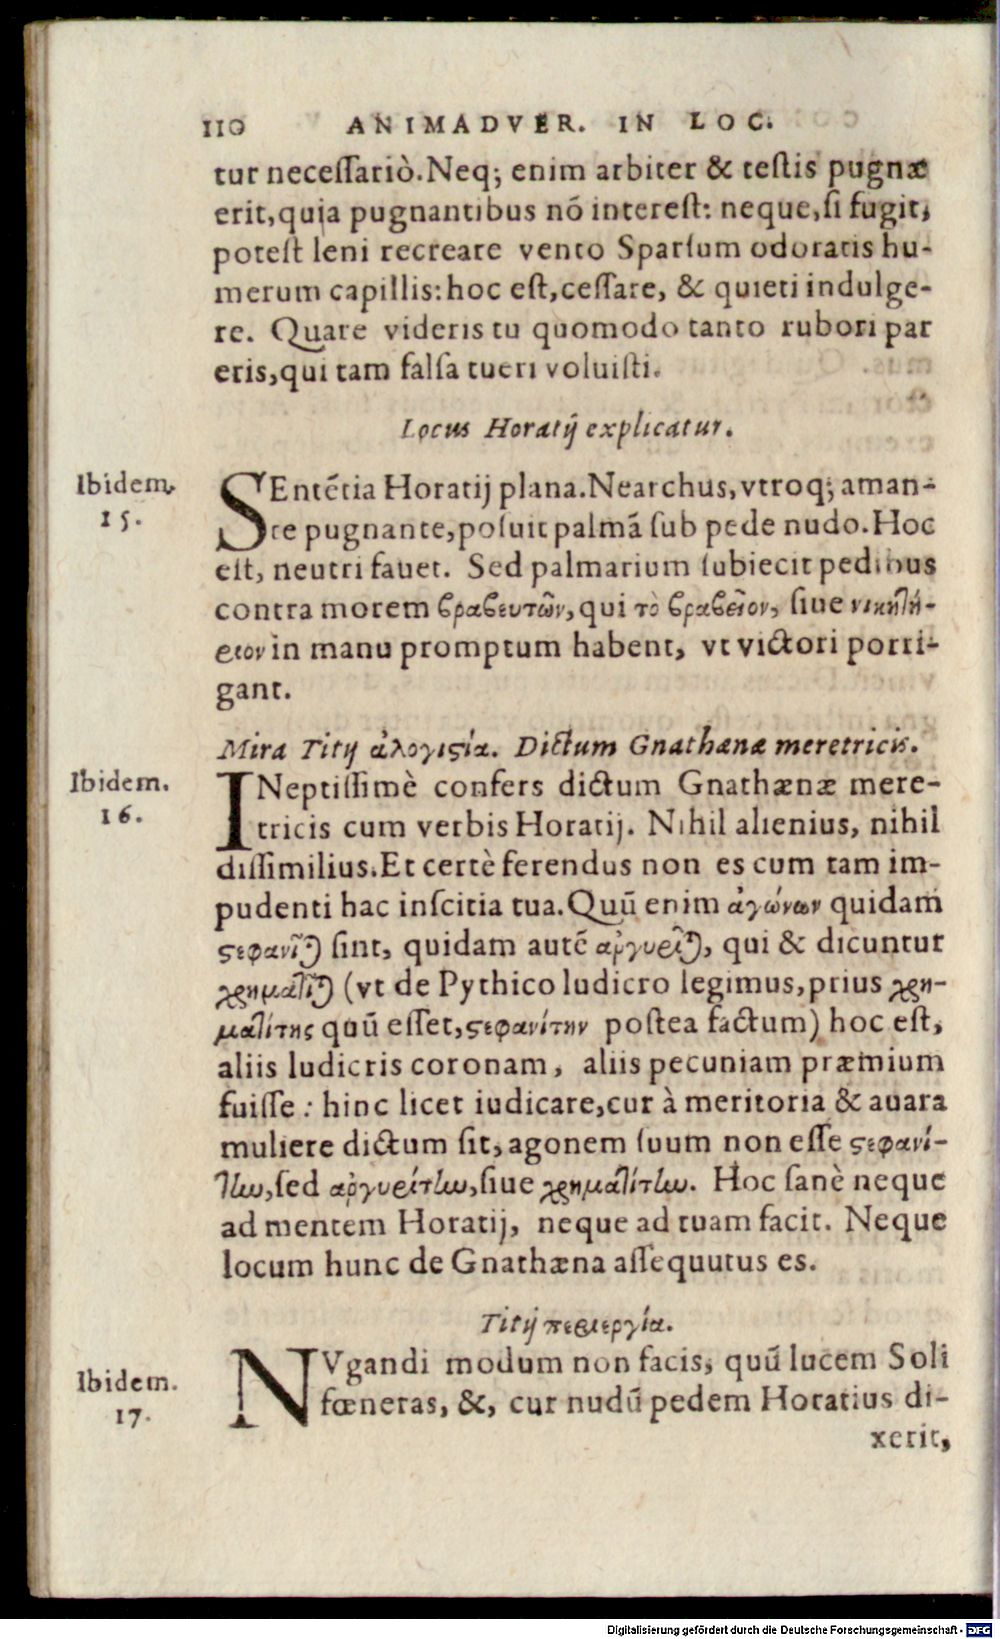 110 ANIMADVER. IN LOC.
tur necessariò. Neq; enim arbiter & testis pugnæ
erit, quia pugnantibus nō interest: neque, si fugit,
potest leni recreare vento Sparsum odoratis hu-
merum capillis: hoc est, cessare, & quieti indulge-
re. Quare videris tu quomodo tanto rubori par
eris, qui tam falsa tueri voluisti.
Locus Horatij explicatur.
Ibidem.
15.
SEntētia Horatij plana. Nearchus, vtroq; aman-
te pugnante, posuit palmā sub pede nudo. Hoc
est, neutri fauet. Sed palmarium subiecit pedibus
contra morem βραβευτῶν, qui τὸ βραβεῖον, siue νικητή-
ριον in manu promptum habent, vt victori porri-
gant.
Mira Titij ἀλογιστία. Dictum Gnathænæ meretricis.
Ibidem.
16.
INeptissimè confers dictum Gnathænæ mere-
tricis cum verbis Horatij. Nihil alienius, nihil
dissimilius. Et certè ferendus non es cum tam im-
pudenti hac inscitia tua. Quū enim ἀγώνων quidam
στεφανῖται sint, quidam autē ἀργυρῖται, qui & dicuntur
χρηματῖται (vt de Pythico ludicro legimus, prius χρη-
ματίτης quū esset, στεφανίτην postea factum) hoc est,
aliis ludicris coronam, aliis pecuniam præmium
fuisse: hinc licet iudicare, cur à meritoria & auara
muliere dictum sit, agonem suum non esse στεφανί-
την, sed ἀργυρίτην, siue χρηματίτην. Hoc sanè neque
ad mentem Horatij, neque ad tuam facit. Neque
locum hunc de Gnathæna assequutus es.
Titij περιεργία.
Ibidem.
17.
NVgandi modum non facis, quū lucem Soli
fœneras, &, cur nudū pedem Horatius di-
xerit,
Digitalisierung gefördert durch die Deutsche Forschungsgemeinschaft - DFG